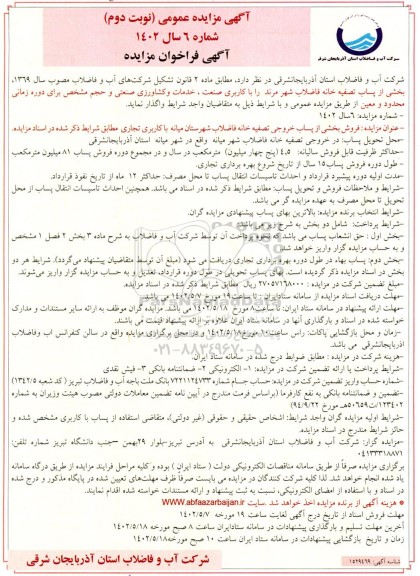 آگهی مزایده عمومی (نوبت دوم)
شماره ٦ سال ١٤٠٢
آگهی فراخوان مزایده
شرکت آب و فاضلاب استان آذربایجان شرقی
شرکت آب و فاضلاب استان آذربایجانشرقی در نظر دارد، مطابق ماده ٢ قانون تشکیل شرکت‌های آب و فاضلاب مصوب سال ١٣٦٩،
بخشی از پساب تصفیه خانه فاضلاب شهر مرند را با کاربری صنعت ، خدمات وکشاورزی صنعتی و حجم مشخص برای دوره زمانی
محدود و معین از طریق مزایده عمومی و با شرایط ذیل به متقاضیان واجد شرایط واگذار نماید.
- شماره مزایده: ٦-سال ١٤٠٢
-عنوان مزایده: فروش بخشی از پساب خروجی تصفیه خانه فاضلاب شهرستان میانه با کاربری تجاری مطابق شرایط ذکر شده در اسناد مزایده.
-محل تحویل پساب: در خروجی تصفیه خانه فاضلاب شهر میانه واقع در شهر میانه استان آذربایجانشرقی
-حداکثر ظرفیت قابل فروش سالیانه: ٤,٥ (پنج چهار میلیون) مترمکعب در سال و در مجموع دوره فروش پساب ٨١ میلیون مترمکعب
- طول دوره فروش پساب:١٥ سال از تاریخ شروع بهره برداری تجاری.
-مدت اولیه دوره پیشبرد قرارداد و احداث تاسیسات انتقال پساب تا محل مصرف: حداکثر ١٢ ماه از تاریخ نفوذ قرارداد.
-شرایط و ملاحظات فروش و تحویل پساب: مطابق شرایط ذکر شده در اسناد می باشد. همچنین احداث تاسیسات انتقال پساب از محل
تحویل تا محل مصرف به عهده مزایده گر می باشد.
-شرایط انتخاب برنده مزایده: بالاترین بهای پساب پیشنهادی مزایده گران.
-شرایط پرداخت: شامل دو بخش به شرح زیر می باشد:
-بخش اول : حق انشعاب پساب می باشد که نحوه پرداخت آن توسط شرکت آب و فاضلاب به شرح ماده ٣ بخش ٢ فصل ١ مشخص
و به حساب مزایده گزار واریز خواهد شد.
-بخش دوم: پساب بهاء در طول دوره بهره برداری تجاری دریافت می شود (مبلغ آن توسط متقاضیان پیشنهاد می‌گردد). شرایط هر دو
بخش در اسناد مزایده ذکر گردیده است. بهای پساب تحویلی در طول دوره قرارداد، تعدیل و به حساب مزایده گزار واریز می‌شوند.
-مبلغ تضمین شرکت در مزایده : ٢٧٠٥٧١٦٨٠٠٠ ریال مطابق شرایط ذکر شده در اسناد مزایده.
-مهلت دریافت اسناد مزایده از سامانه ستادایران: تا ساعت ١٩ مورخ ١٤٠٢/٥/٧ می باشد.
-مهلت ارائه پیشنهاد در سامانه ستاد ایران: تا ساعت٨ مورخ ١٤٠٢/٥/١٨ می باشد. مزایده گران موظف به ارائه سایر مستندات و مدارک
خواسته شده در اسناد و بارگذاری آنها در سامانه ستاد ایران علاوه بر ارائه پیشنهاد قیمت می باشند.
-زمان و محل بازگشایی پاکات: راس ساعت ١٠ مورخ١٤٠٢/٥/١٨ و در محل برگزاری مزایده واقع در سالن کنفرانس آب وفاضلاب
اذربایجانشرقی می باشد.
-هزینه شرکت در مزایده : مطابق ضوابط درج شده در سامانه ستاد ایران.
-شرایط پرداخت یا ارائه تضمین شرکت در مزایده: ١- الکترونیکی ٢- ضمانتنامه بانکی ٣- فیش نقدی
-شماره حساب واریز تضمین شرکت در مزایده: حساب جام شماره ٧٢٢١١٢٤٧٣٣ بانک ملت باجه آب و فاضلاب تبریز ( کد شعبه ١٣٤٢/٥)
-تضمین و ضمانتنامه بانکی به نفع کارفرما (براساس فرمت مندرج در آیین نامه تضمین معاملات دولتی مصوب هیئت وزیران به شماره
١٢٣٤٠٢/ت٥٠٦٥٩هـ مورخ ٩٤/٩/٢٢)
-شرایط اولیه مزایده گران واجد شرایط: اشخاص حقیقی و حقوقی (غیر دولتی)، متقاضی استفاده از پساب با کاربری مشخص شده و
حائز شرایط مندرج در اسناد مزایده.
-مزایده گزار: شرکت آب و فاضلاب استان آذربایجانشرقی به آدرس تبریز–بلوار ٢٩بهمن –جنب دانشگاه تبریز شماره تلفن:
٠٤١٣٣٣١٨٨٧١
برگزاری مزایده صرفاً از طریق سامانه مناقصات الکترونیکی دولت ( ستاد ایران ) بوده و کلیه مراحل فرایند مزایده از طریق درگاه سامانه
یاد شده انجام خواهد شد. لذا کلیه شرکت کنندگان در مزایده می بایست صرفاً ظرف مهلت‌های تعیین شده در پایگاه مذکور و درج شده
در اسناد و با استفاده از امضای الکترونیکی، نسبت به ثبت پیشنهاد و ارائه مستندات خواسته شده اقدام نمایند.
* هزینه آگهی از برنده مزایده اخذ خواهد شد .سایت WWW.abfaazarbaijan.ir
مهلت فروش اسناد از تاریخ درج آگهی لغایت ساعت ١٩ مورخه ١٤٠٢/٥/٧
آخرین مهلت تسلیم و بارگذاری پیشنهادات در سامانه ستادایران ساعت ٨ صبح مورخه ١٤٠٢/٥/١٨
زمان و تاریخ بازگشایی پیشنهادات در سامانه ستاد ایران ساعت ١٠ صبح مورخه ١٤٠٢/٥/١٨
شرکت آب و فاضلاب استان آذربایجان شرقی
شناسه آگهی: ١٥٢٩٤٦٩
٠٢١-٨٨٣٤٩٦٧٠-٥